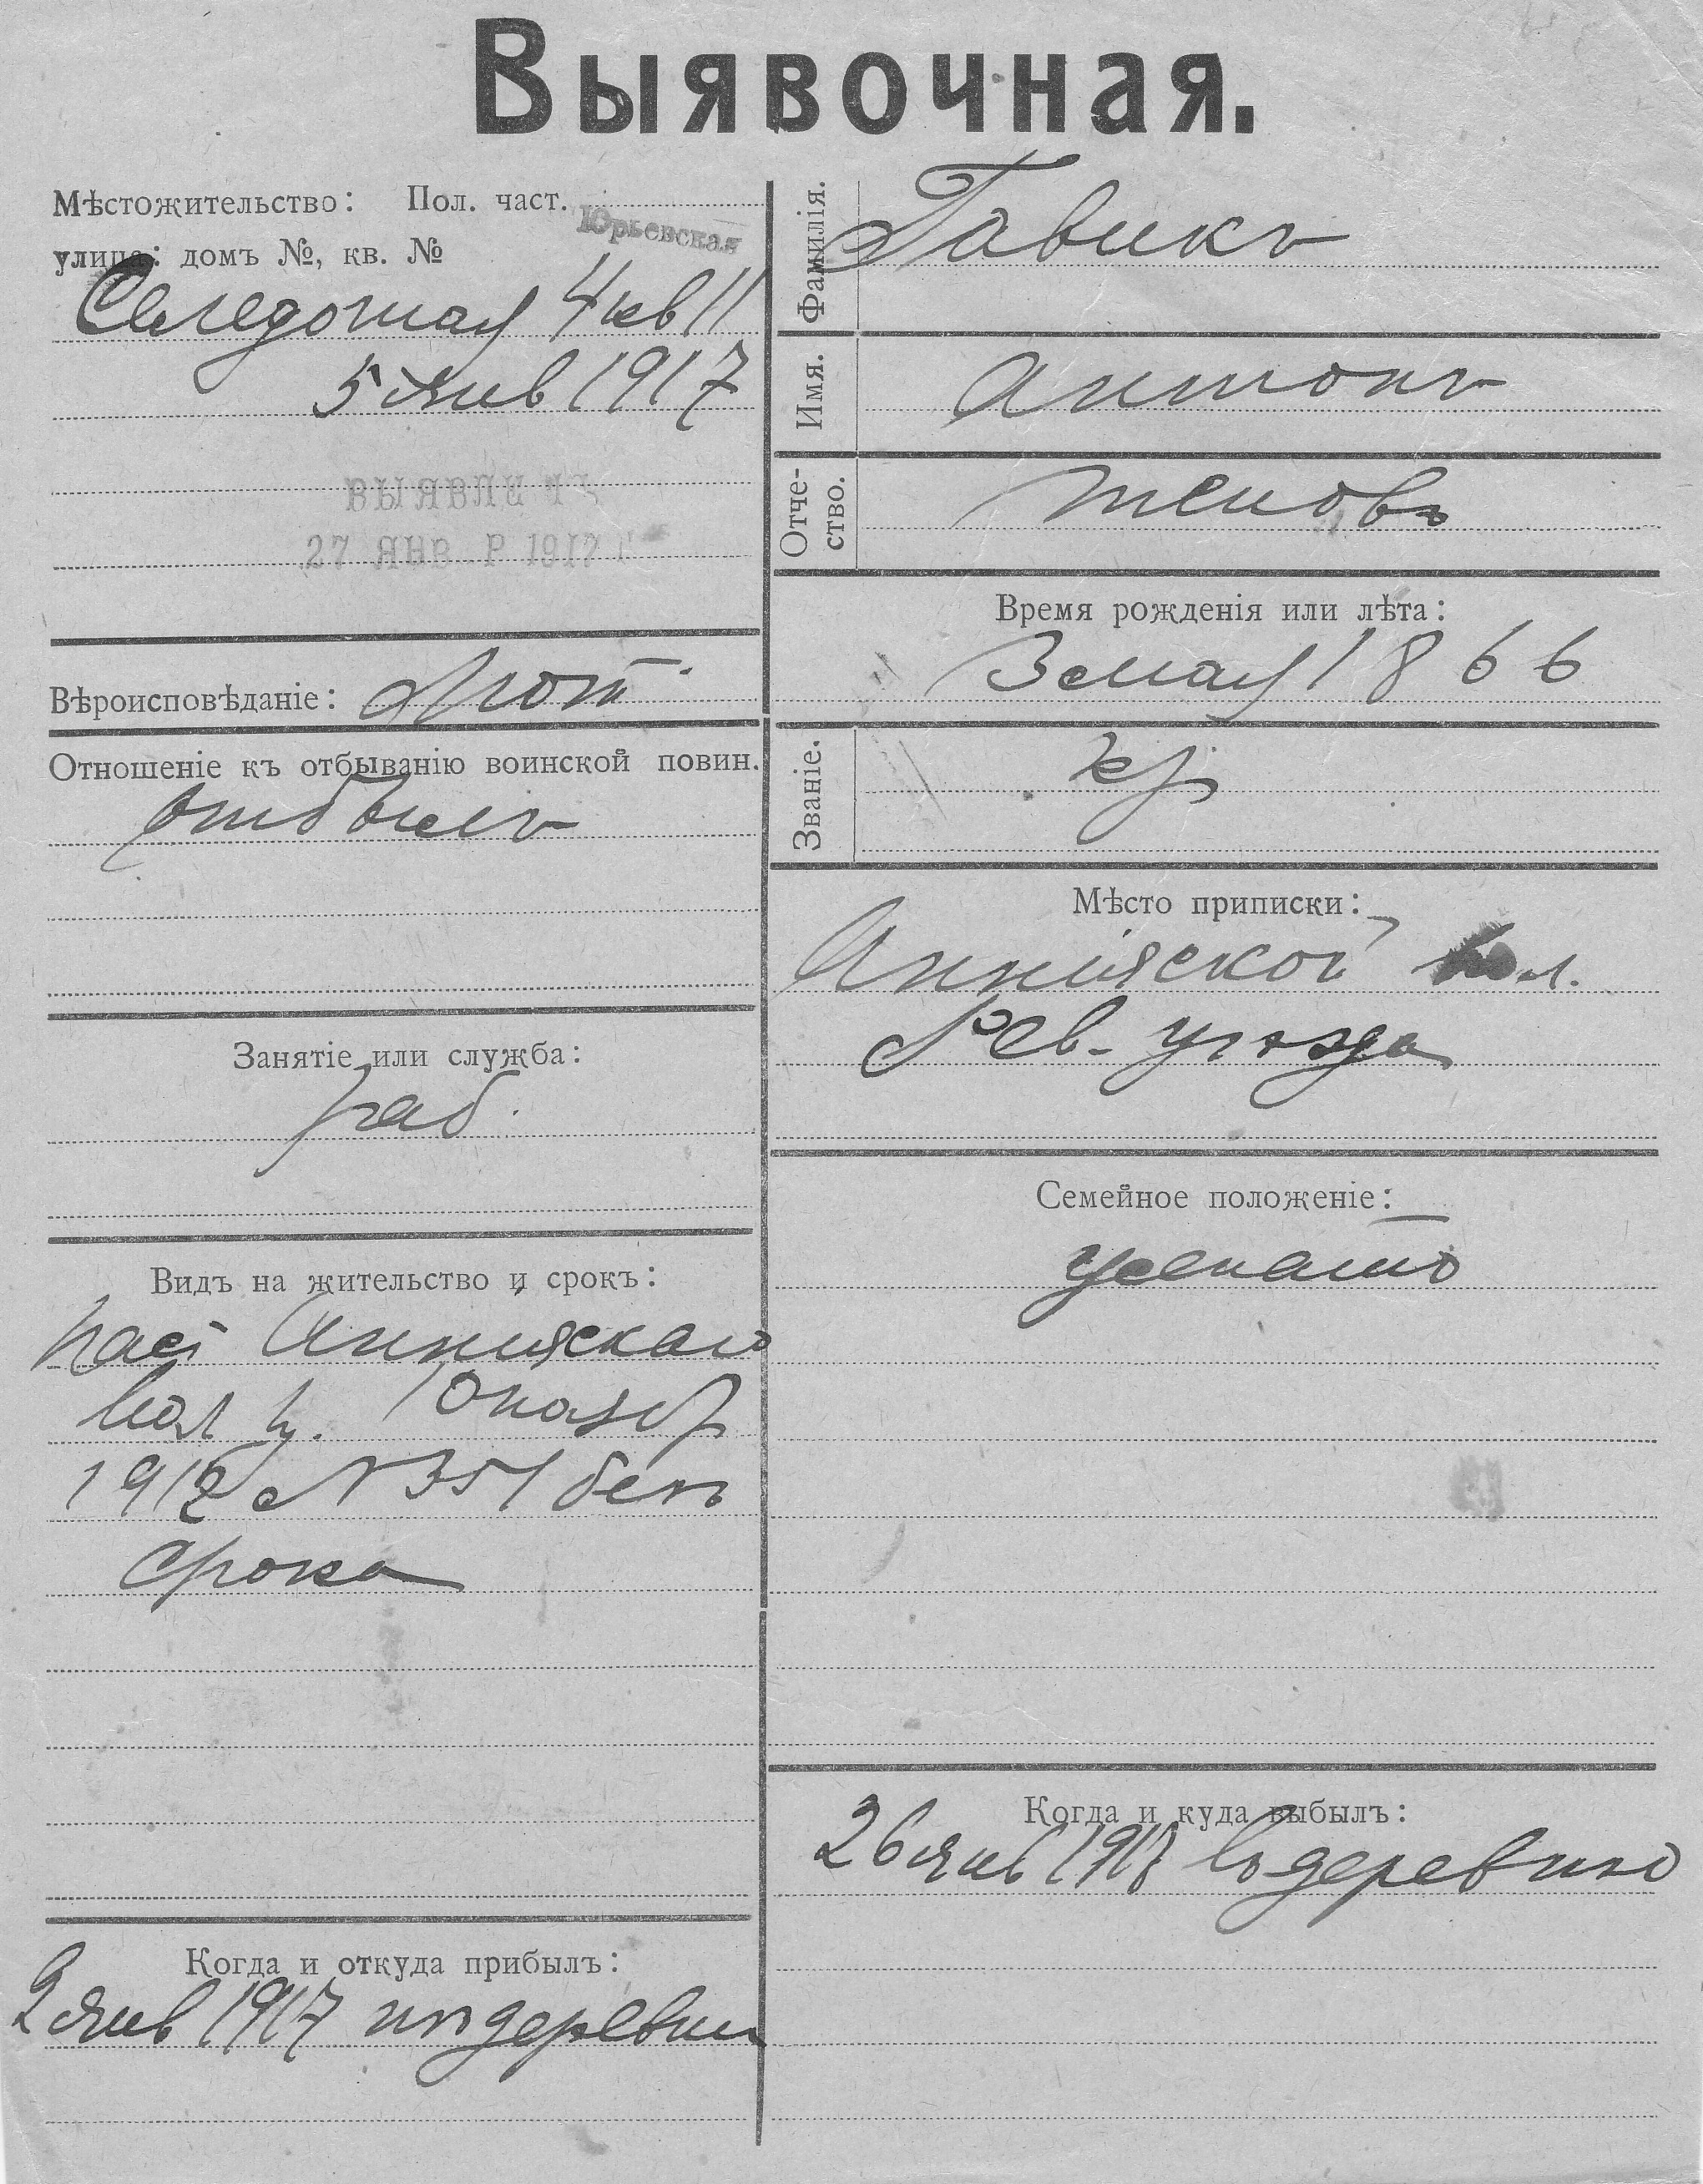 Выявочная.
Мѣстожительство: Пол. част.
Юрьевская
улица: домъ №, кв. №
4 кв 11
5 янв 1917
ВЫЯВЛЕ
27 ЯНВ Р 1917 Г
Вѣроисповѣданіе: Лют
Отношеніе къ отбыванію воинской повин.
отбылъ
Занятіе или служба:
раб.
Видъ на жительство и срокъ:
пасп Аннiяскаго
вол пр. 10 ноябр
1912 № 351 безъ
срока
Когда и откуда прибылъ:
2 янв 1917 изъ деревни
Фамилія.
Гавикъ
Имя.
Антонъ
Отчество.
Теновъ
Время рожденія или лѣта:
3 мая 1866
Званіе.
кр
Мѣсто приписки:
Аннiяской вол.
Рев. уѣзда
Семейное положеніе:
женатъ
Когда и куда выбылъ:
26 янв 1917 въ деревню